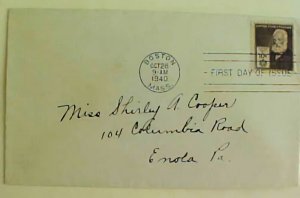 BOSTON
OCT 28
9-AM
1940
MASS.
FIRST DAY OF ISSUE
Miss Shirley A Cooper
104 Columbia Road
Enola Pa.